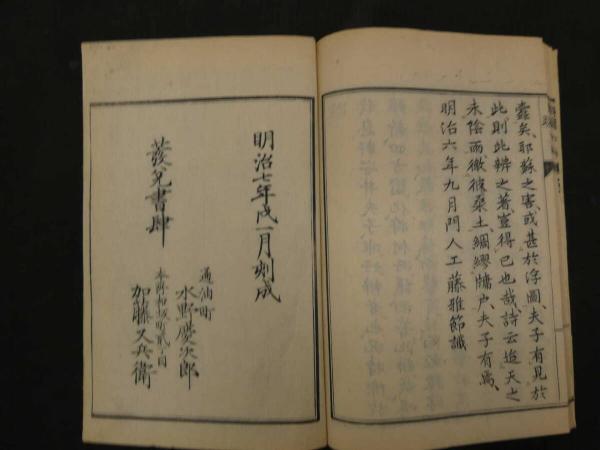 蠹矣、耶蘇之害、或甚於浮圖、夫子有見於
此、則此辨之著、豈得已也哉、詩云、迨天之
未陰雨、徹彼桑土、綢繆牖戶、夫子有焉、
明治六年九月門人工藤雅節識
明治七年戌一月刻成
發兌書肆
通油町
水野慶次郎
本所相生町貳丁目
加藤又兵衛